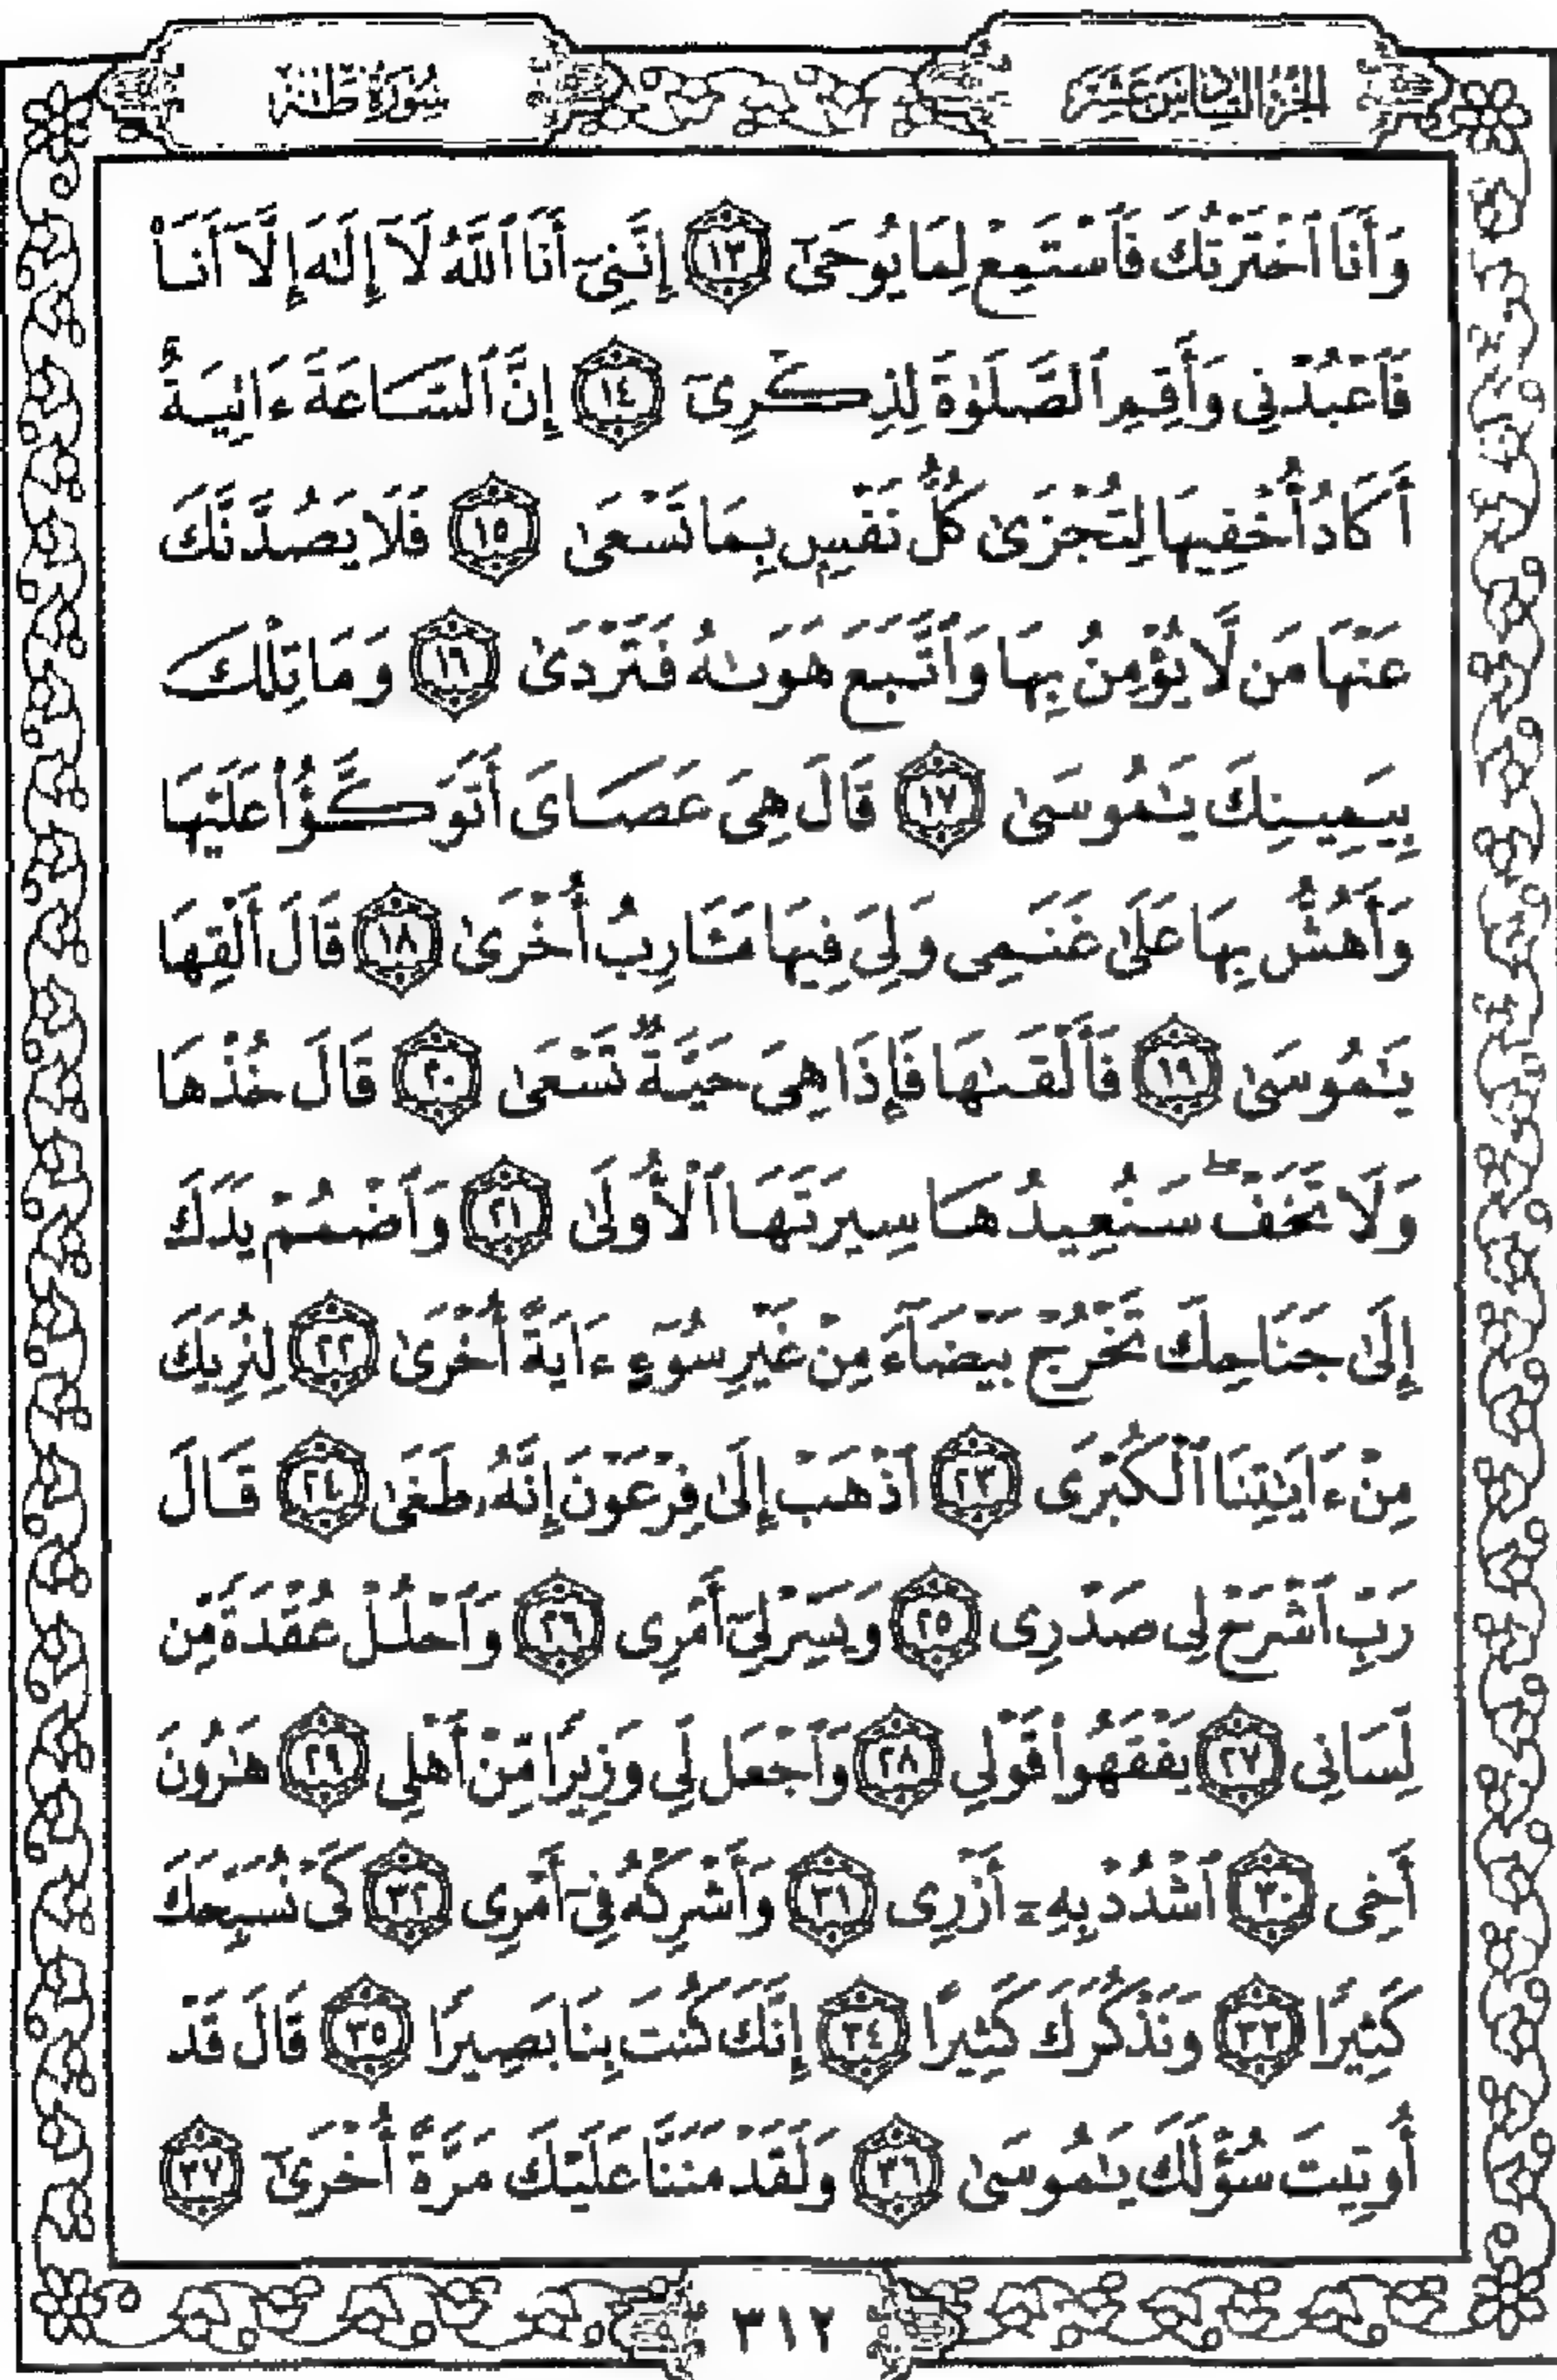 الجزء السادس عشر
سورة طه
وَأَنَا ٱخْتَرْتُكَ فَٱسْتَمِعْ لِمَا يُوحَىٰٓ ١٣ إِنَّنِىٓ أَنَا ٱللَّهُ لَآ إِلَٰهَ إِلَّآ أَنَا۠
فَٱعْبُدْنِى وَأَقِمِ ٱلصَّلَوٰةَ لِذِكْرِىٓ ١٤ إِنَّ ٱلسَّاعَةَ ءَاتِيَةٌ
أَكَادُ أُخْفِيهَا لِتُجْزَىٰ كُلُّ نَفْسٍۭ بِمَا تَسْعَىٰ ١٥ فَلَا يَصُدَّنَّكَ
عَنْهَا مَن لَّا يُؤْمِنُ بِهَا وَٱتَّبَعَ هَوَىٰهُ فَتَرْدَىٰ ١٦ وَمَا تِلْكَ
بِيَمِينِكَ يَٰمُوسَىٰ ١٧ قَالَ هِىَ عَصَاىَ أَتَوَكَّؤُا۟ عَلَيْهَا
وَأَهُشُّ بِهَا عَلَىٰ غَنَمِى وَلِىَ فِيهَا مَـَٔارِبُ أُخْرَىٰ ١٨ قَالَ أَلْقِهَا
يَٰمُوسَىٰ ١٩ فَأَلْقَىٰهَا فَإِذَا هِىَ حَيَّةٌ تَسْعَىٰ ٢٠ قَالَ خُذْهَا
وَلَا تَخَفْ ۖ سَنُعِيدُهَا سِيرَتَهَا ٱلْأُولَىٰ ٢١ وَٱضْمُمْ يَدَكَ
إِلَىٰ جَنَاحِكَ تَخْرُجْ بَيْضَآءَ مِنْ غَيْرِ سُوٓءٍ ءَايَةً أُخْرَىٰ ٢٢ لِنُرِيَكَ
مِنْ ءَايَٰتِنَا ٱلْكُبْرَى ٢٣ ٱذْهَبْ إِلَىٰ فِرْعَوْنَ إِنَّهُۥ طَغَىٰ ٢٤ قَالَ
رَبِّ ٱشْرَحْ لِى صَدْرِى ٢٥ وَيَسِّرْ لِىٓ أَمْرِى ٢٦ وَٱحْلُلْ عُقْدَةً مِّن
لِّسَانِى ٢٧ يَفْقَهُوا۟ قَوْلِى ٢٨ وَٱجْعَل لِّى وَزِيرًا مِّنْ أَهْلِى ٢٩ هَٰرُونَ
أَخِى ٣٠ ٱشْدُدْ بِهِۦٓ أَزْرِى ٣١ وَأَشْرِكْهُ فِىٓ أَمْرِى ٣٢ كَىْ نُسَبِّحَكَ
كَثِيرًا ٣٣ وَنَذْكُرَكَ كَثِيرًا ٣٤ إِنَّكَ كُنتَ بِنَا بَصِيرًا ٣٥ قَالَ قَدْ
أُوتِيتَ سُؤْلَكَ يَٰمُوسَىٰ ٣٦ وَلَقَدْ مَنَنَّا عَلَيْكَ مَرَّةً أُخْرَىٰٓ ٣٧
٣١٢